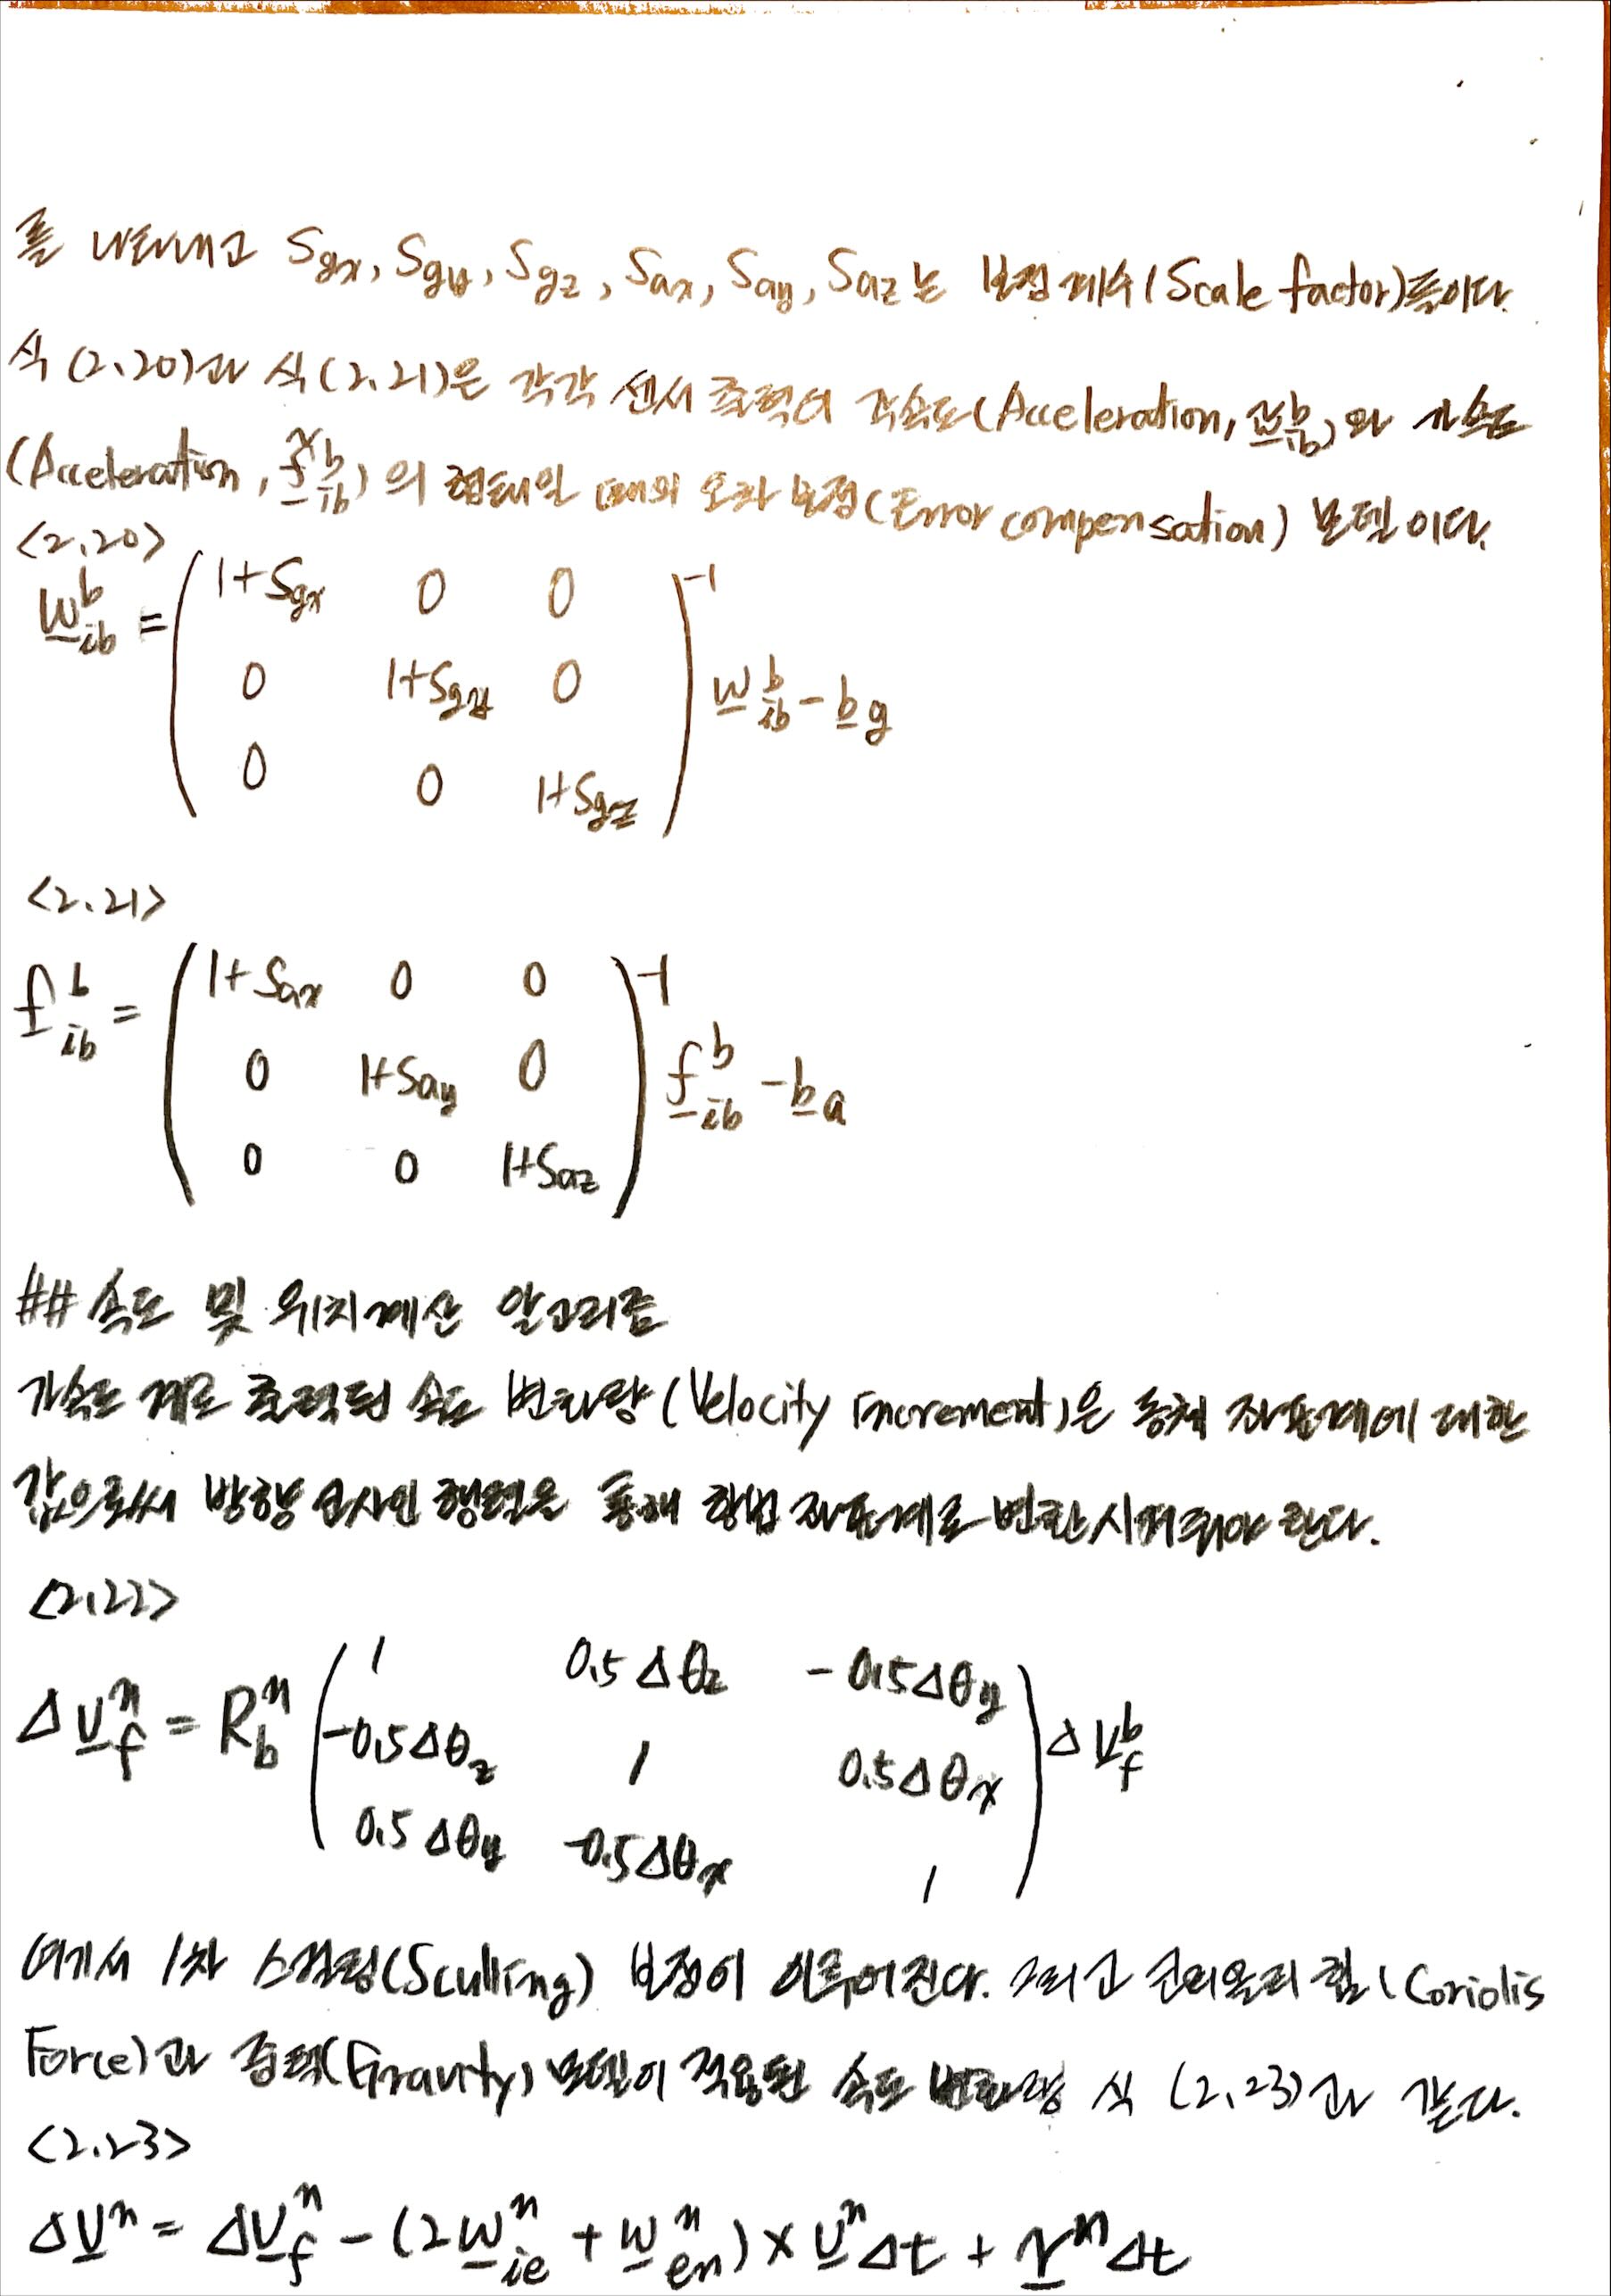 를 나타내고 Sgx, Sgy, Sgz, Sax, Say, Saz는 보정계수(Scale factor)들이다.
식 (2.20)과 식(2.21)은 각각 센서 출력이 각속도(Acceleration, w̃ᵇib)와 가속도
(Acceleration, f̃ᵇib)의 형태일 때의 오차 보정(Error compensation) 모델이다.
<2.20>
wᵇib = ( 1+Sgx 0 0 )⁻¹
0 1+Sgy 0 wᵇib - bg
0 0 1+Sgz
<2.21>
fᵇib = ( 1+Sax 0 0 )⁻¹
0 1+Say 0 fᵇib - ba
0 0 1+Saz
## 속도 및 위치계산 알고리즘
가속도 계로 출력된 속도 변화량(Velocity Increment)은 동체 좌표계에 대한
값으로써 방향 코사인 행렬을 통해 항법 좌표계로 변환시켜줘야 한다.
<2.22>
ΔVⁿf = Rⁿb ( 1 0.5Δθz -0.5Δθy
-0.5Δθz 1 0.5Δθx ) ΔVᵇf
0.5Δθy -0.5Δθx 1
여기서 1차 스컬링(Sculling) 보정이 이루어진다. 그리고 코리올리 힘(Coriolis
Force)과 중력(Gravity) 모델이 적용된 속도 변화량 식 (2.23)과 같다.
<2.23>
ΔVⁿ = ΔVⁿf - (2wⁿie + wⁿen) × VⁿΔt + rⁿΔt